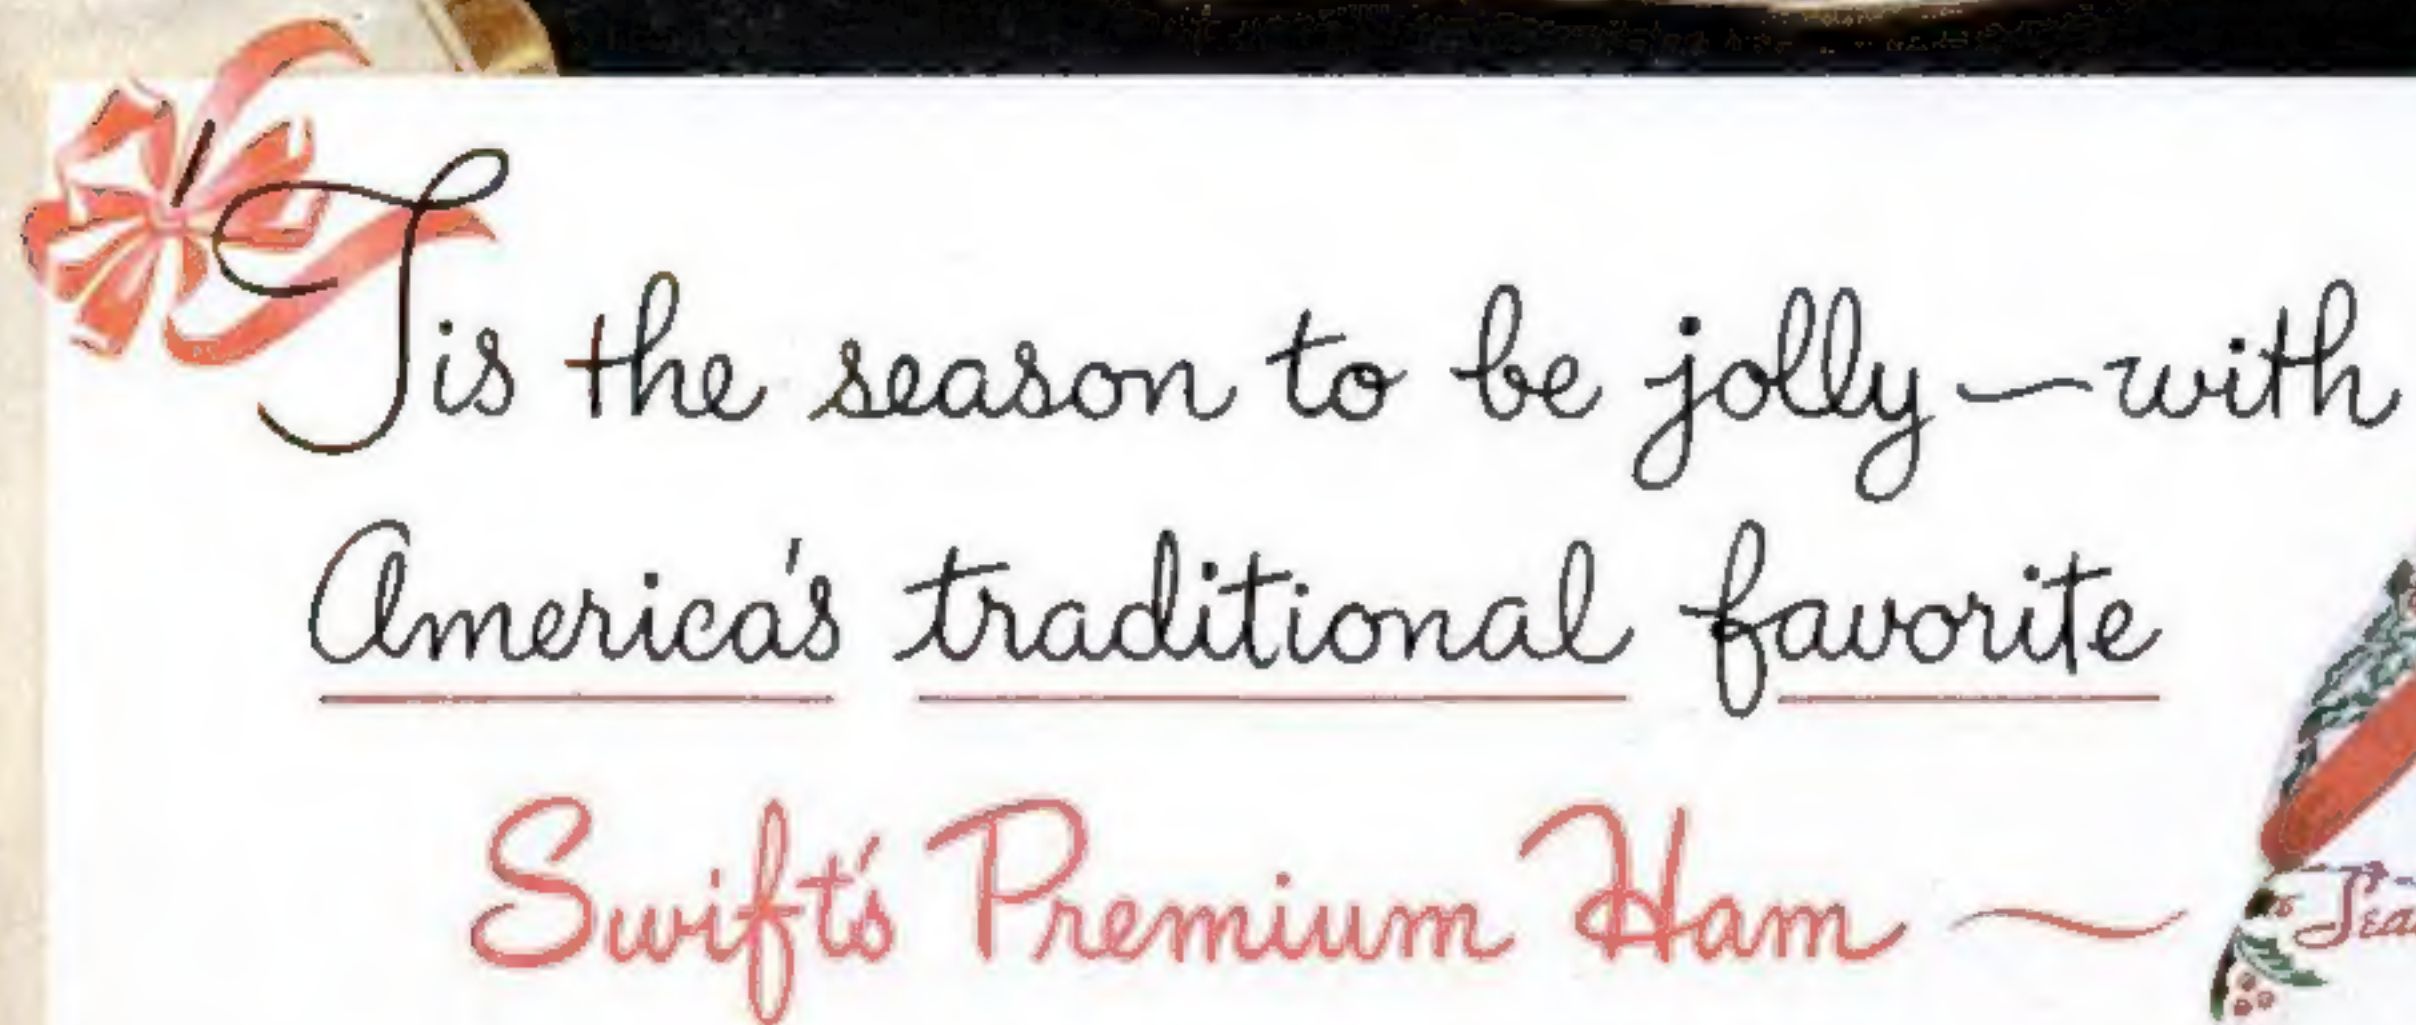 'Tis the season to be jolly—with
America's traditional favorite
Swift's Premium Ham ~